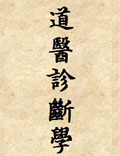 道醫診斷學